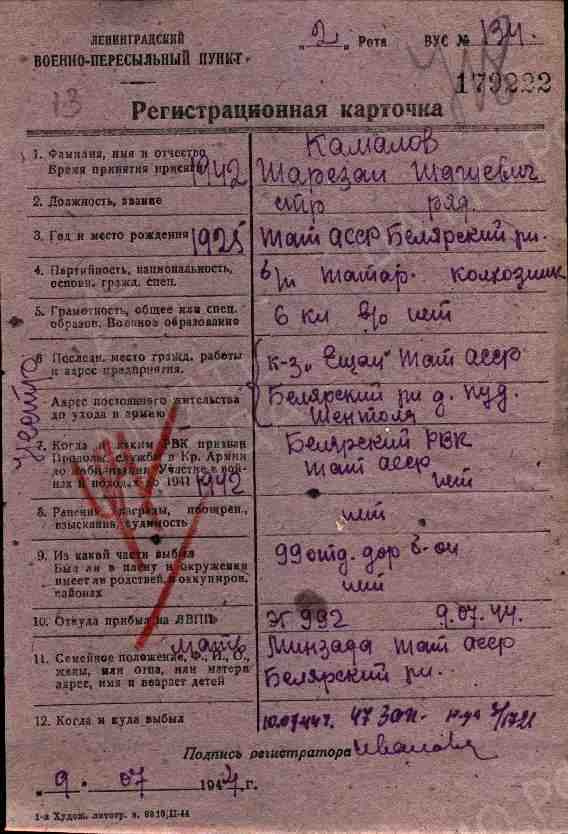 ЛЕНИНГРАДСКИЙ
ВОЕННО-ПЕРЕСЫЛЬНЫЙ ПУНКТ
„2„ Рота ВУС № 134.
179222
13
Регистрационная карточка
1. Фамилия, имя и отчество Камалов
Время принятия присяги 1942
2. Должность, звание стр ряд.
3. Год и место рождения 1925 Тат АССР Белярский рн.
4. Партийность, национальность, б/п татар. колхозник
основн. гражд. спец.
5. Грамотность, общее или спец. 6 кл в/о нет
образов. Военное образование
6 Последн. место гражд. работы к-з Тат АССР
и адрес предприятия.
Адрес постоянного жительства Белярский рн д.
до ухода в армию Шентала
7. Когда и каким РВК призван Белярский РВК
Продолж. службы в Кр. Армии Тат АССР
до мобилизации. Участие в вой-
нах и поход. до 1941 1942 нет
8. Ранения, награды, поощрен., нет
взыскания, судимость
9. Из какой части выбыл 99 отд. дор б-он
Был ли в плену и окружении нет
имеет ли родствен. в оккупиров.
районах
10. Откуда прибыл на ЛВПП ЭГ 992 9.07.44.
мать
11. Семейное положение, Ф., И., О., Минзада Тат АССР
жены, или отца, или матери Белярский рн.
адрес, имя и возраст детей
12. Когда и куда выбыл 10.07.44г. 47 зап.
Подпись регистратора Иванова
„9„ 07 1944 г.
1-я Худож. литогр. з.